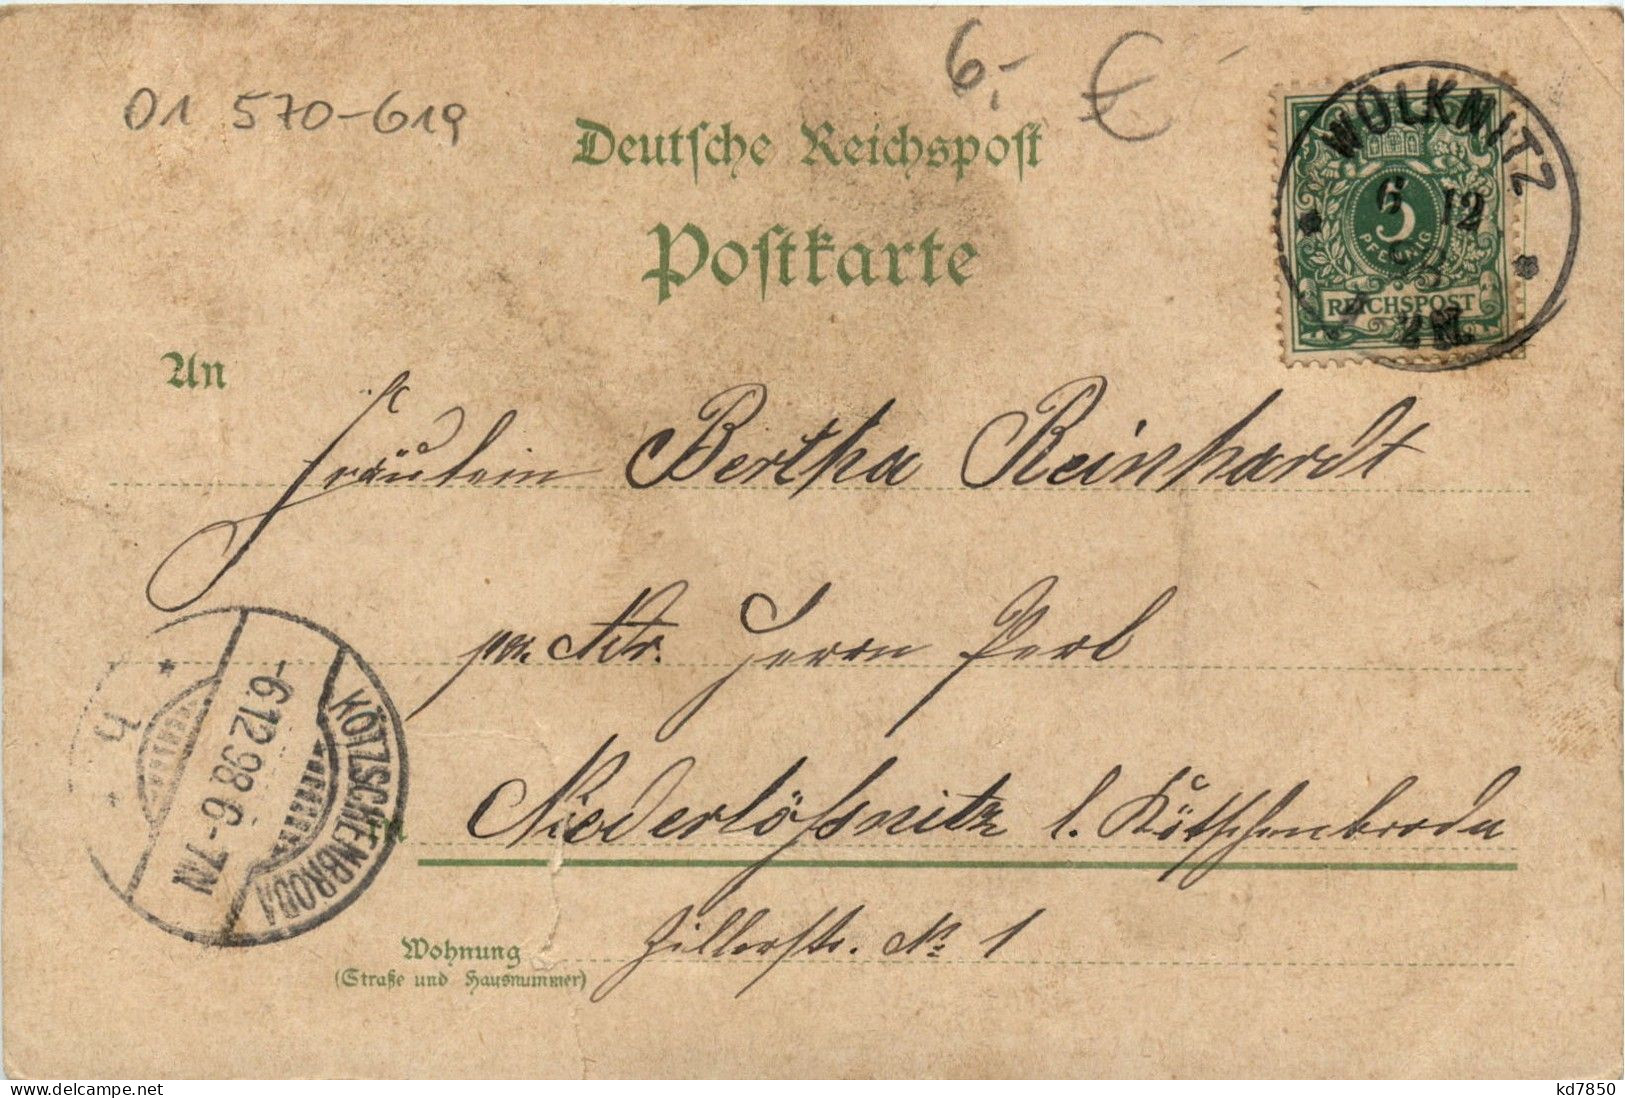 01 570-619
6,- €
Deutsche Reichspost
Postkarte
WOLKNITZ
6 12
98
2 N.
5
PFENNIG
REICHSPOST
An
Fräulein Bertha Reinhardt
pr. Adr. Herrn Perl
Niederlößnitz b. Kötzschenbroda
Zillerstr. No 1
KÖTZSCHENBRODA
-6.12.98.6-7N
Wohnung
(Straße und Hausnummer)
www.delcampe.net
kd7850